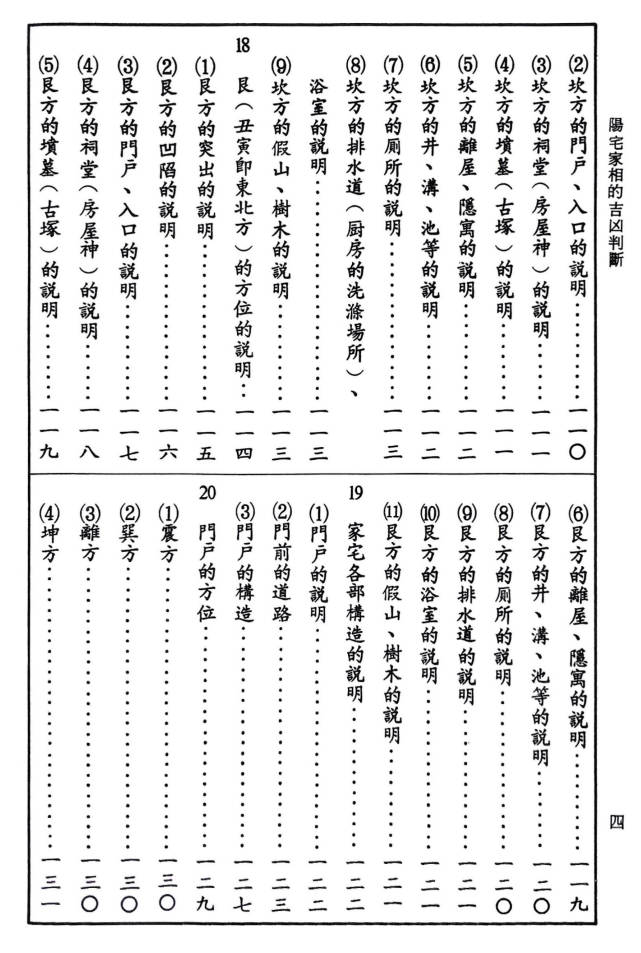 陽宅家相的吉凶判斷
四
(2)坎方的門戶、入口的說明…………一一〇
(3)坎方的祠堂(房屋神)的說明…………一一一
(4)坎方的墳墓(古塚)的說明…………一一一
(5)坎方的離屋、隱寓的說明…………一一二
(6)坎方的井、溝、池等的說明…………一一二
(7)坎方的厠所的說明…………一一三
(8)坎方的排水道(厨房的洗滌場所)、
浴室的說明…………一一三
(9)坎方的假山、樹木的說明…………一一三
18 艮(丑寅卽東北方)的方位的說明…一一四
(1)艮方的突出的說明…………一一五
(2)艮方的凹陷的說明…………一一六
(3)艮方的門戶、入口的說明…………一一七
(4)艮方的祠堂(房屋神)的說明…………一一八
(5)艮方的墳墓(古塚)的說明…………一一九
(6)艮方的離屋、隱寓的說明…………一一九
(7)艮方的井、溝、池等的說明…………一二〇
(8)艮方的厠所的說明…………一二〇
(9)艮方的排水道的說明…………一二一
(10)艮方的浴室的說明…………一二一
(11)艮方的假山、樹木的說明…………一二一
19 家宅各部構造的說明…………一二二
(1)門戶的說明…………一二二
(2)門前的道路…………一二三
(3)門戶的構造…………一二七
20 門戶的方位…………一二九
(1)震方…………一三〇
(2)巽方…………一三〇
(3)離方…………一三〇
(4)坤方…………一三一